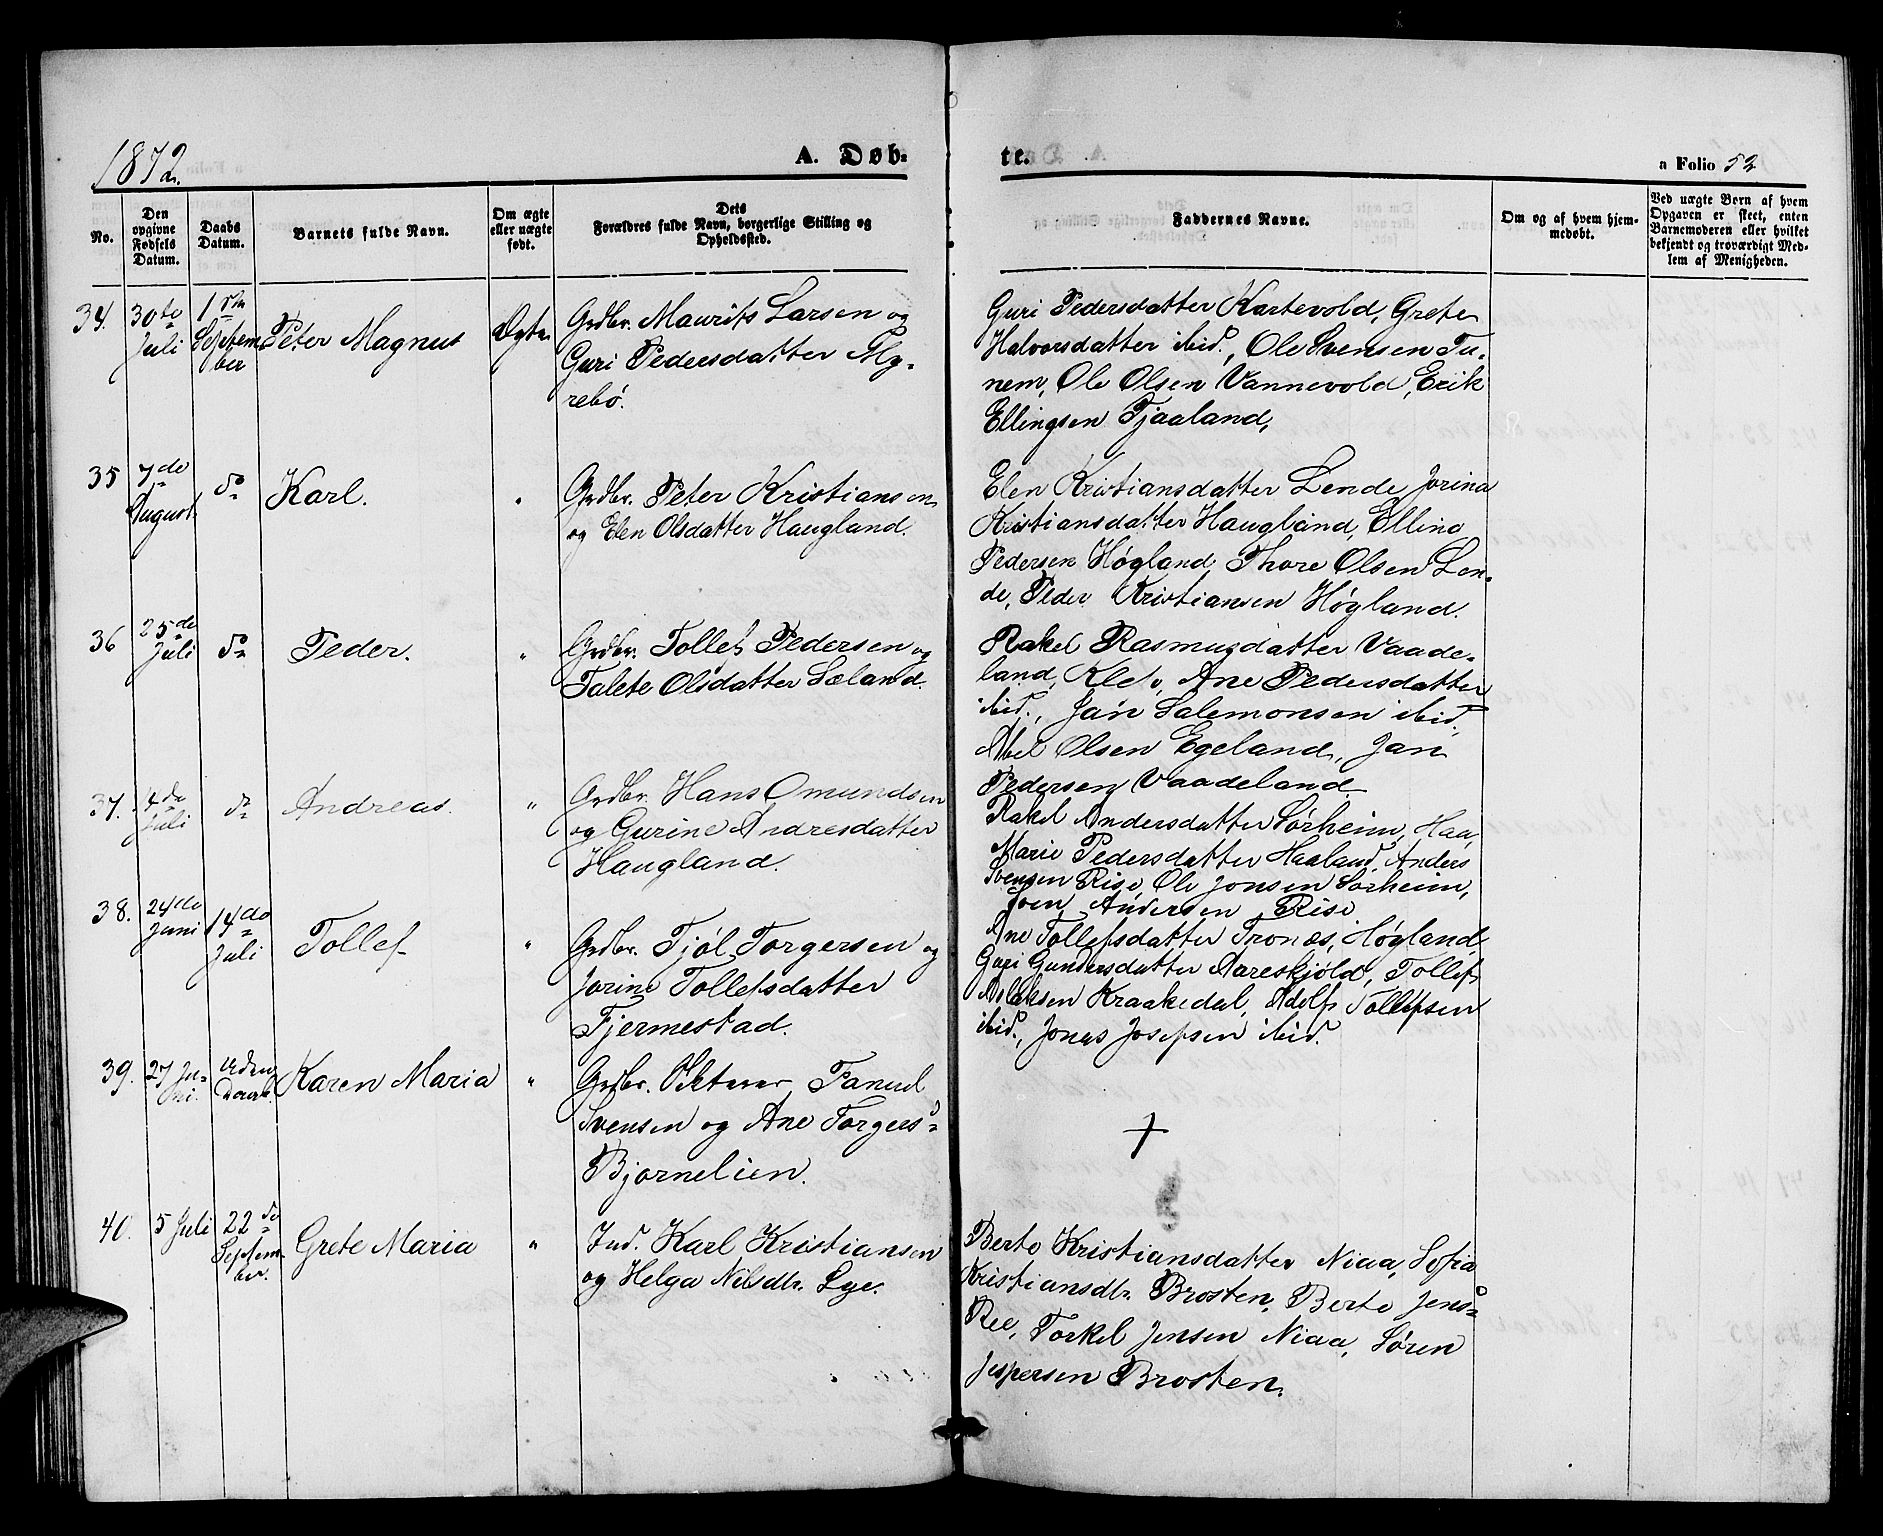 1872.
A. Døb-
te.
a Folio 52
No.
Den
opgivne
Fødsels
Datum.
Daabs
Datum.
Barnets fulde Navn.
Om ægte
eller uægte
født.
Dets
Forældres fulde Navn, borgerlige Stilling og
Opholdssted.
Faddernes Navne.
Om og af hvem hjem-
medøbt.
Ved uægte Børn af hvem
Opgaven er skeet, enten
Barnemoderen eller hvilket
bekjendt og troværdigt Med-
lem af Menigheden.
34.
30te
Juli
1ste
Septem-
ber
Peter Magnus
Ægte
Grdbr. Maurits Larsen og
Guri Pedersdatter My-
rebø.
Guri Pedersdatter Kartevold, Grete
Halvorsdatter ibid., Ole Svensen Tu-
nem, Ole Olsen Vannevold, Erik
Ellingsen Tjaaland,
35
7de
August
do
Karl.
"
Grdbr. Peter Kristiansen
og Elen Olsdatter Haugland.
Elen Kristiansdatter Lende, Jorina
Kristiansdatter Haugland, Elling
Pedersen Høgland, Thore Olsen Len-
de, Peder Kristiansen Høgland.
36
25de
Juli
do
Peder.
"
Grdbr. Tollef Pedersen og
Talete Olsdatter Sæland.
Rakel Rasmusdatter Vaade-
land, Klev, Ane Pedersdatter
ibid., Jan Salemonsen ibid.,
Abel Olsen Egeland, Jan
Pedersen Vaadeland.
37.
14de
Juli
do
Andreas.
"
Grdbr. Hans Omundsen
og Gurine Andresdatter
Haugland.
Rakel Andersdatter Sørheim, Haa,
Marie Pedersdatter Haaland, Anders
Svensen Rise, Ole Jonsen Sørheim,
Sven Andersen Rise
38.
24de
Juni
14de
Juli
Tollef
"
Grdbr. Tjøl Torgersen og
Jorine Tollefsdatter
Fjermestad.
Ane Tollefsdatter Tronæs, Høgland,
Guri Gundersdatter Aareskjold, Tollef
Aslaksen Kraakedal, Adolf Tollefsen
ibid., Jonas Josefsen ibid.
39.
27 Ju-
ni.
Uden
Daab.
Karen Maria
"
Grdbr. Oktavus Fanuel
Svensen og Ane Torgersd
Bjørnelien.
+
40.
5 Juli
22de
Septem-
ber.
Grete Maria
"
Ind. Karl Kristiansen
og Helga Nilsdtr. Lye.
Berte Kristiansdatter Niaa, Sofia
Kristiansdtr. Brosten, Berte Jensd
Ree, Torkel Jensen Niaa, Søren
Jespersen Brosten.